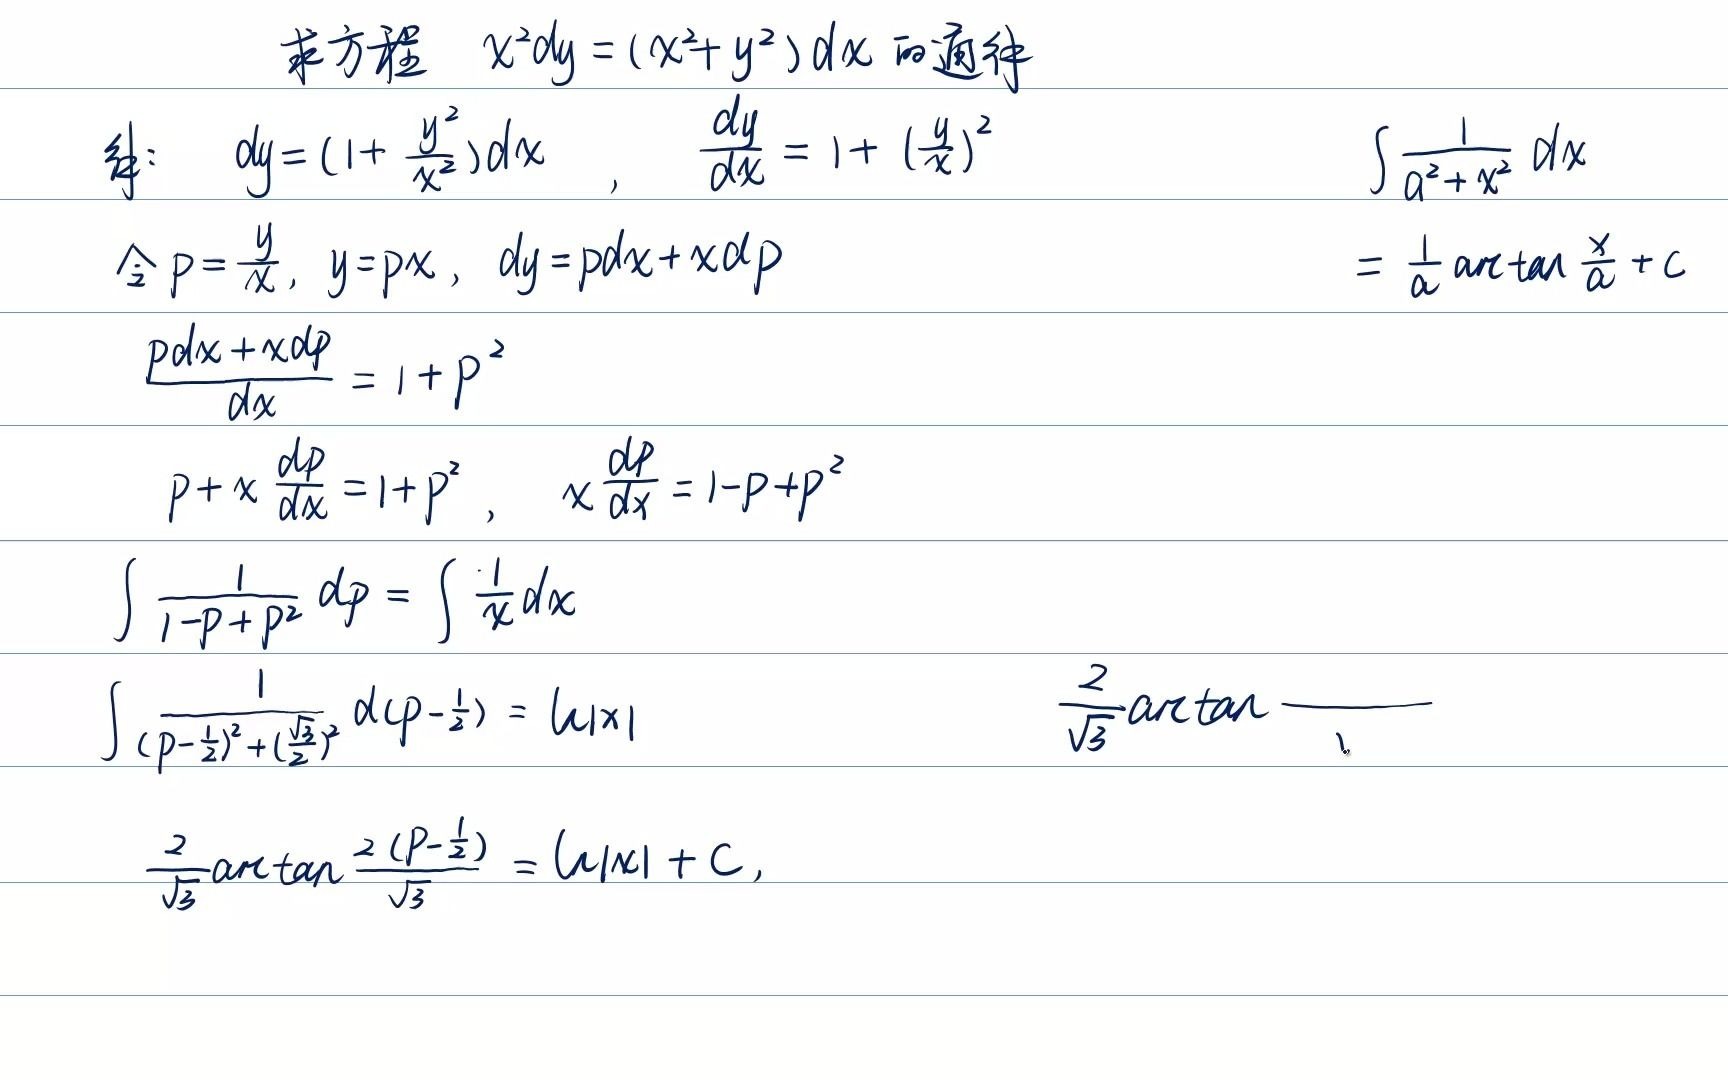 求方程 x²dy = (x²+y²)dx 的通解
解: dy = (1+ y²/x²)dx , dy/dx = 1 + (y/x)²
∫ 1/(a²+x²) dx
= 1/a arctan x/a + C
令 p = y/x, y = px, dy = pdx + xdp
(pdx + xdp)/dx = 1 + p²
p + x dp/dx = 1 + p² , x dp/dx = 1-p+p²
∫ 1/(1-p+p²) dp = ∫ 1/x dx
∫ 1/((p-1/2)²+(√3/2)²) d(p-1/2) = ln|x|
2/√3 arctan
2/√3 arctan 2(p-1/2)/√3 = ln|x| + C,